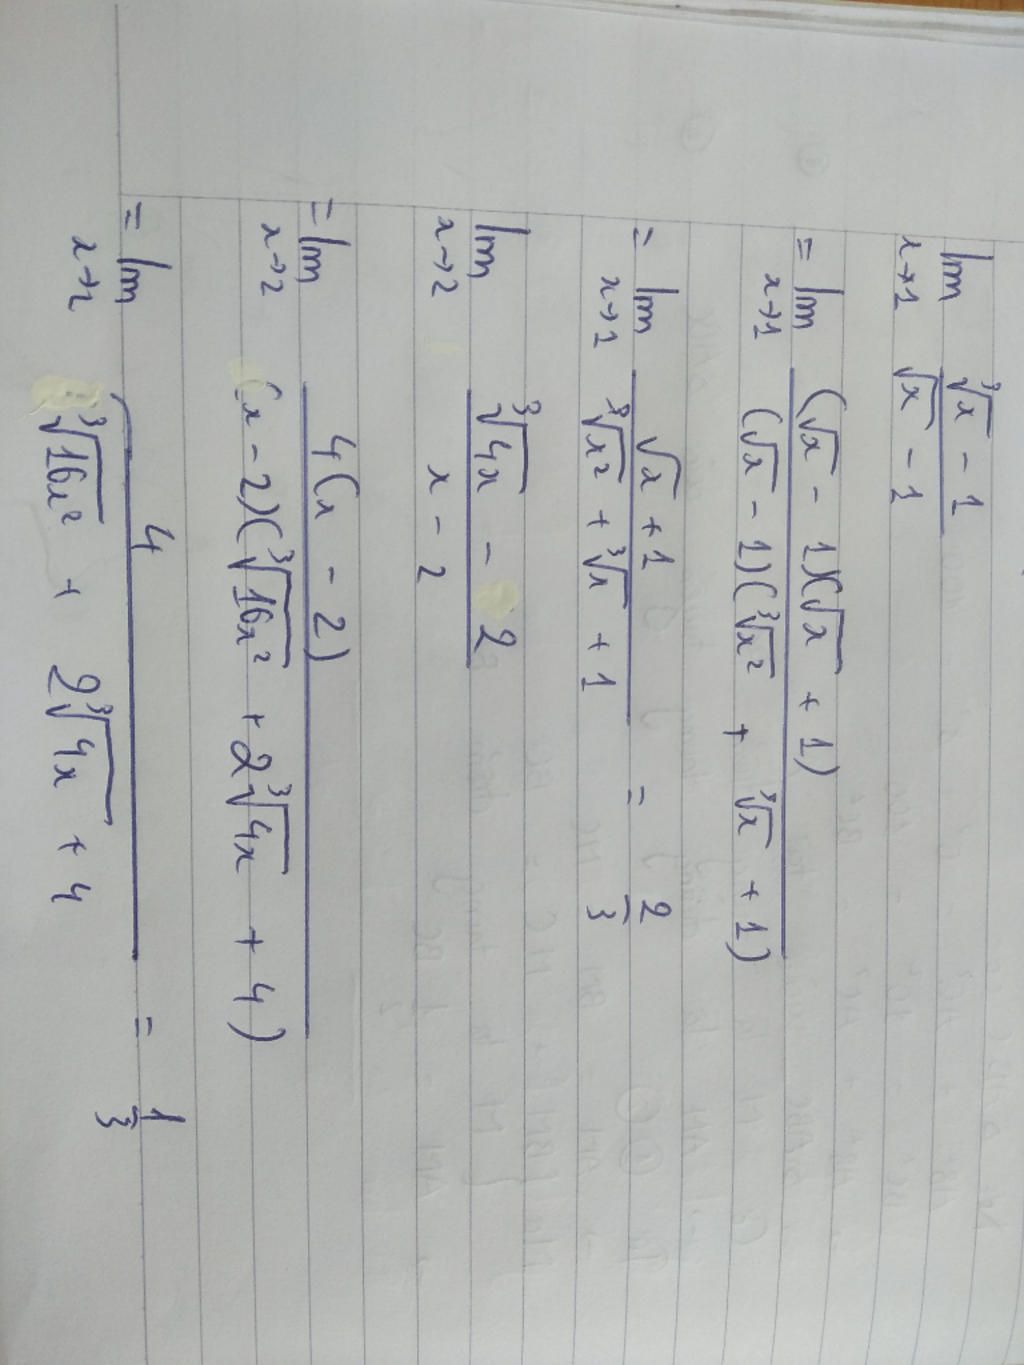 lim x→1 (∛x - 1)/(√x - 1)
= lim x→1 ((√x - 1)(√x + 1))/((√x - 1)(∛x² + ∛x + 1))
= lim x→1 (√x + 1)/(∛x² + ∛x + 1) = 2/3
lim x→2 (∛4x - 2)/(x - 2)
= lim x→2 (4(x - 2))/((x - 2)(∛16x² + 2∛4x + 4))
= lim x→2 4/(∛16x² + 2∛4x + 4) = 1/3